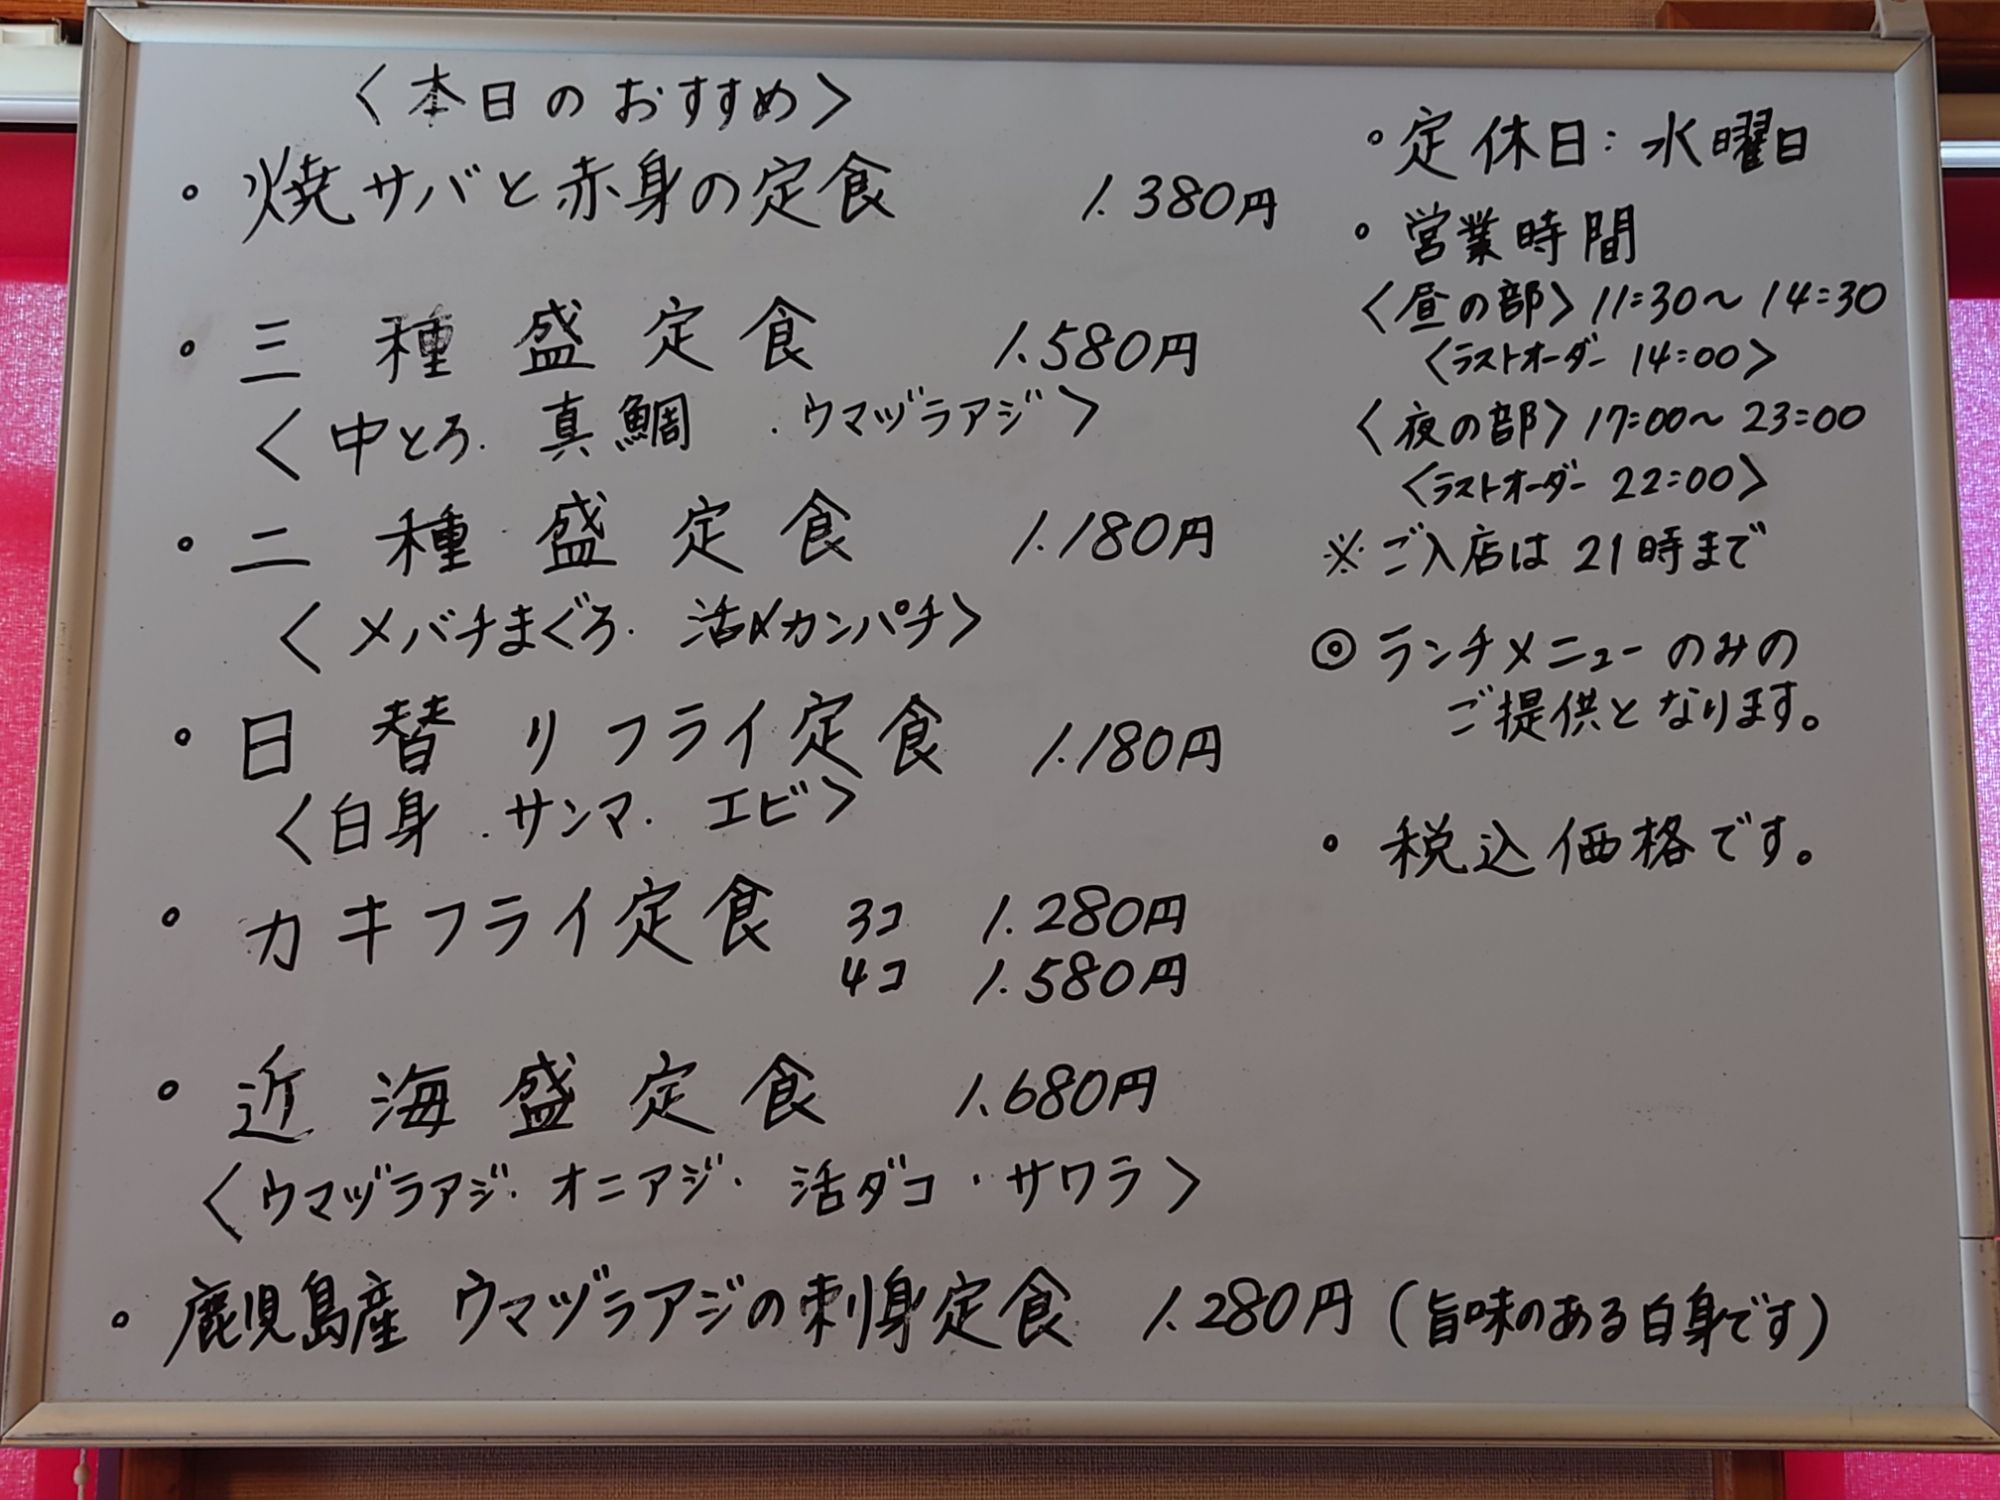 〈本日のおすすめ〉
。焼サバと赤身の定食 1.380円
。三種盛定食 1.580円
〈中とろ.真鯛.ウマヅラアジ〉
。二種盛定食 1.180円
〈メバチまぐろ.活〆カンパチ〉
。日替りフライ定食 1.180円
〈白身.サンマ.エビ〉
。カキフライ定食 3コ 1.280円
4コ 1.580円
。近海盛定食 1.680円
〈ウマヅラアジ.オニアジ.活ダコ・サワラ〉
。鹿児島産 ウマヅラアジの刺身定食 1.280円(旨味のある白身です)
。定休日:水曜日
。営業時間
〈昼の部〉11:30〜14:30
〈ラストオーダー 14:00〉
〈夜の部〉17:00〜23:00
〈ラストオーダー 22:00〉
※ご入店は21時まで
◎ランチメニューのみの
ご提供となります。
。税込価格です。